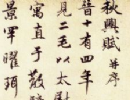 秋興賦 并序
晉十有四年
見二毛以太尉
寓直于散騎
景罕曜珥